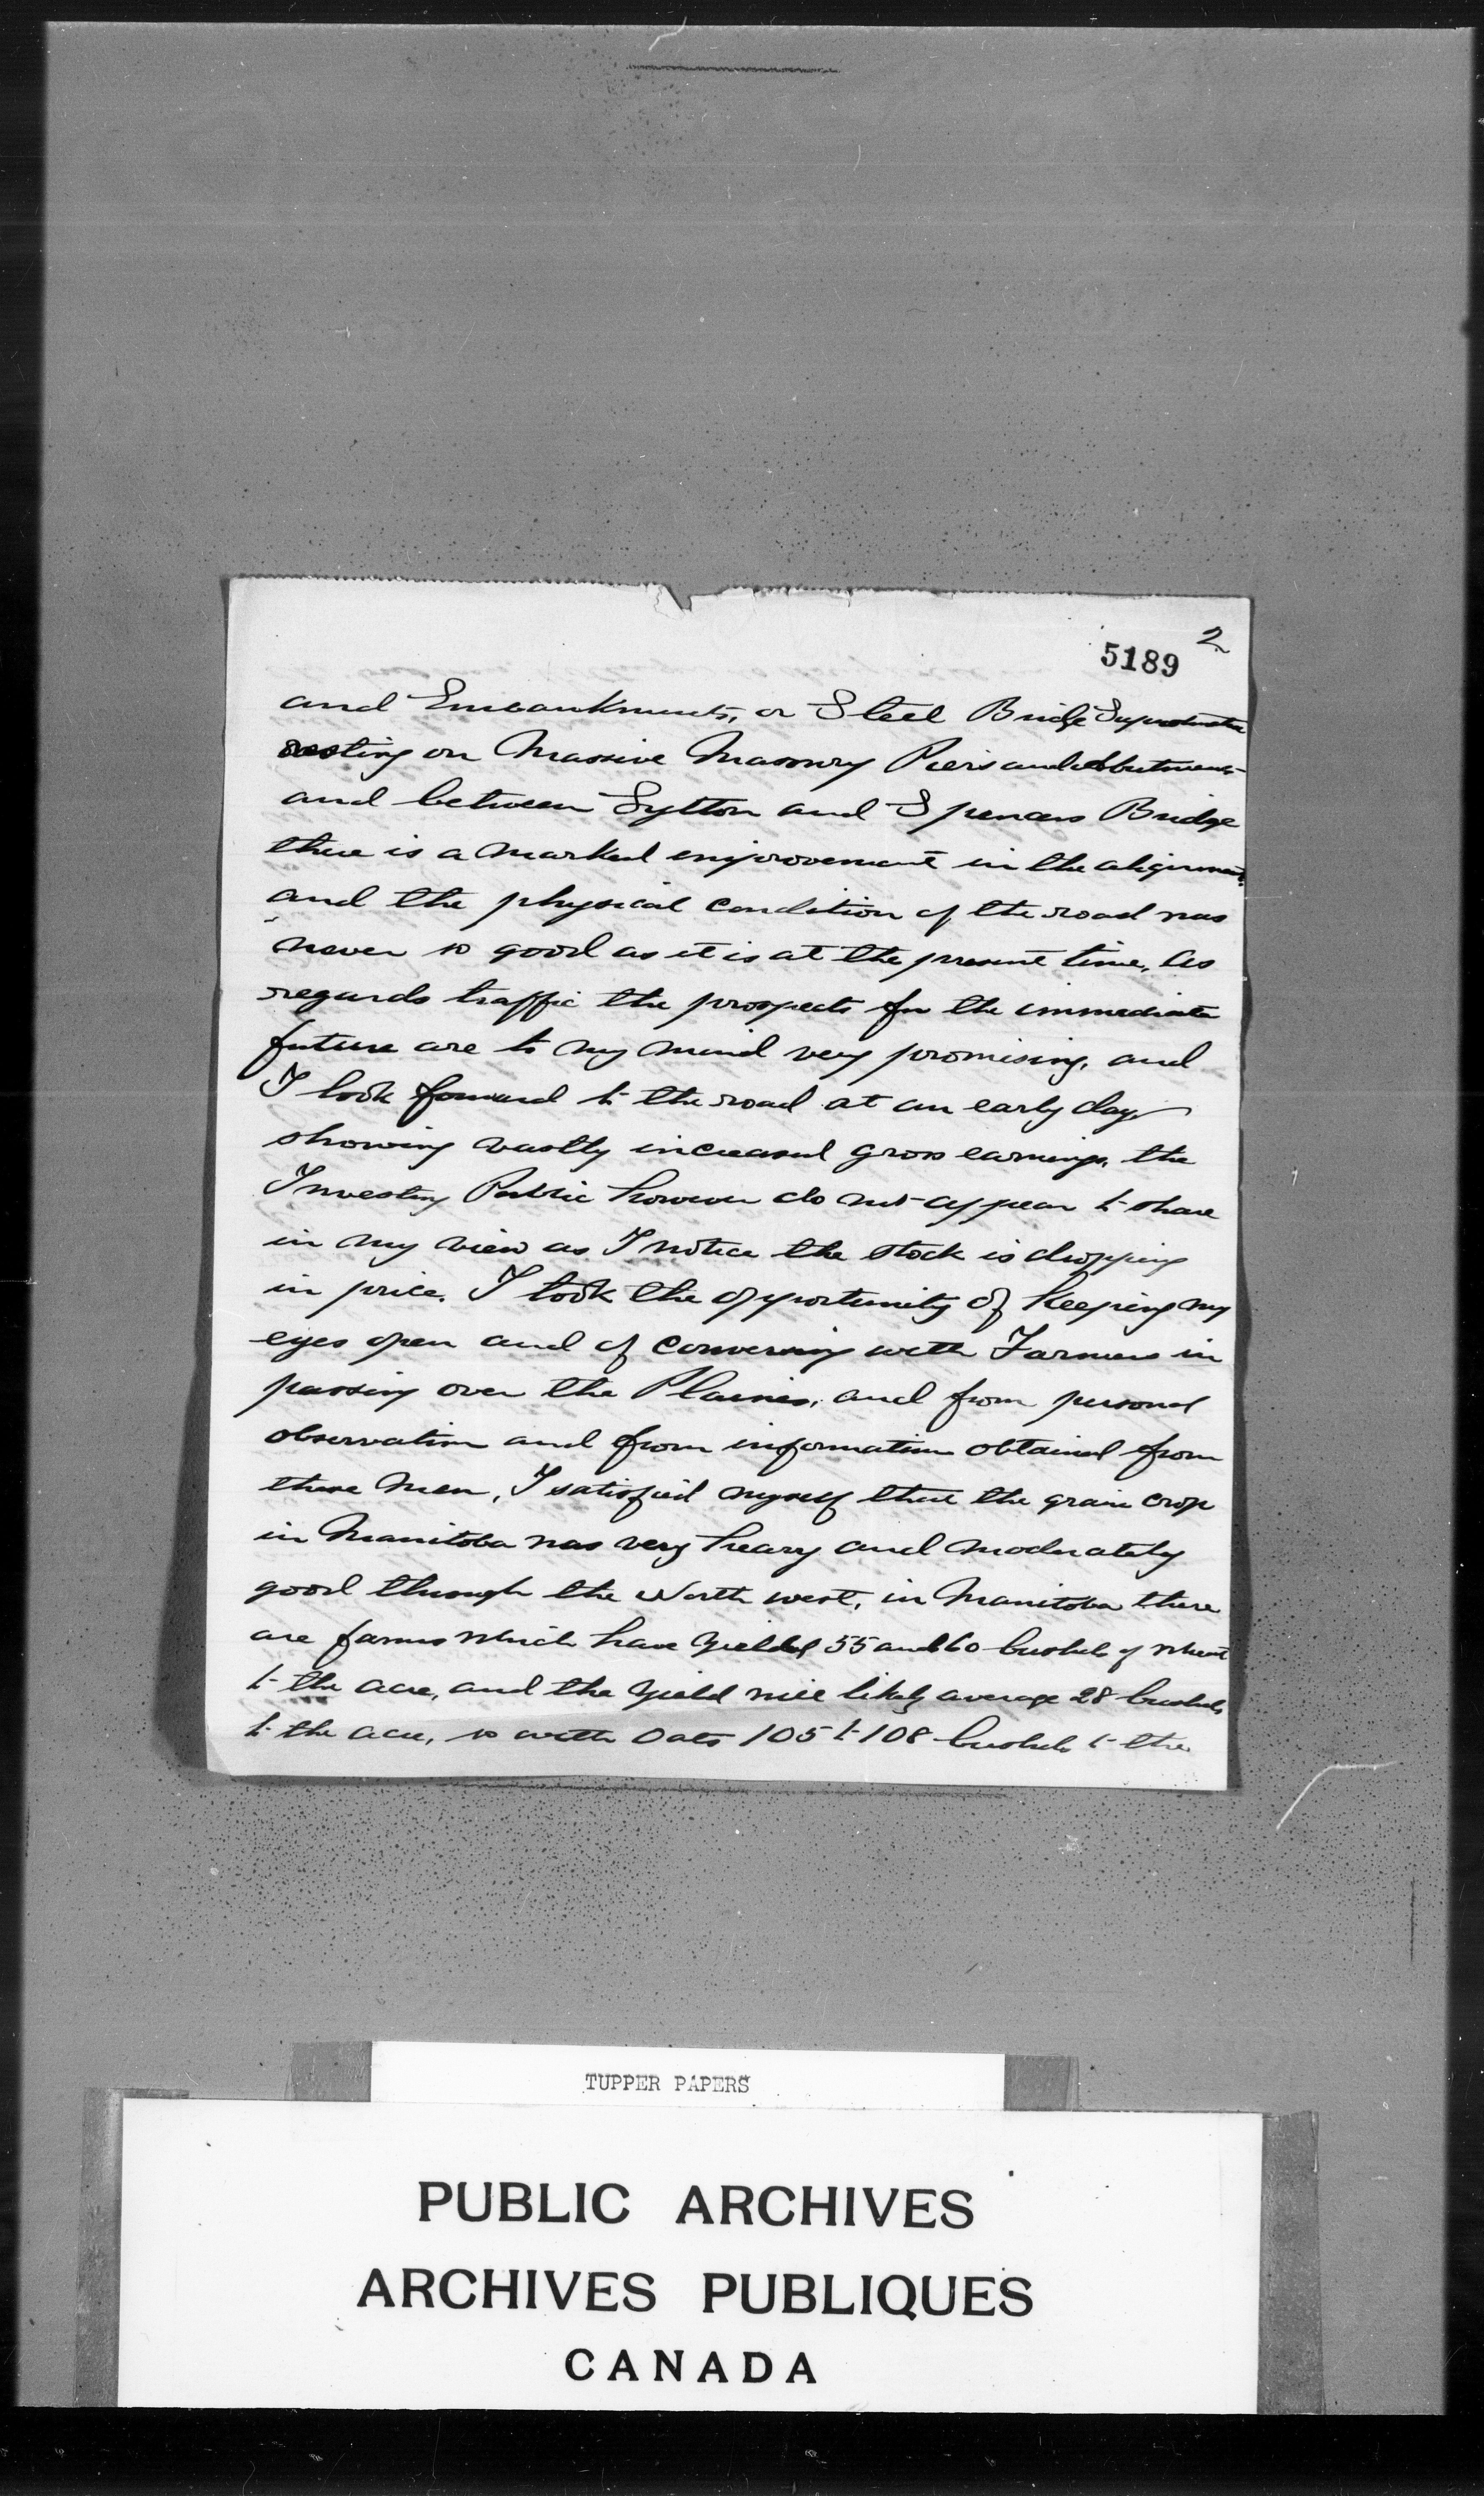 2
5189
and Embankments, or Steel Bridge Superstructure
resting on Massive Masonry Piers and Abutments
and between Lytton and Spences Bridge
there is a marked improvement in the alignment.
and the physical condition of the road was
never so good as it is at the present time. As
regards traffic the prospects for the immediate
future are to my mind very promising, and
I look forward to the road at an early day
showing vastly increased gross earnings, the
Investing Public however do not appear to share
in my view as I notice the stock is dropping
in price. I took the opportunity of keeping my
eyes open and of conversing with Farmers in
passing over the Plains, and from personal
observation and from information obtained from
these men, I satisfied myself that the grain crop
in Manitoba was very heavy and moderately
good through the North west, in Manitoba there
are farms which have yielded 55 and 60 bushels of wheat
to the acre, and the yield will likely average 28 bushels
to the acre, so with Oats 105 to 108 bushels to the
TUPPER PAPERS
PUBLIC ARCHIVES
ARCHIVES PUBLIQUES
CANADA